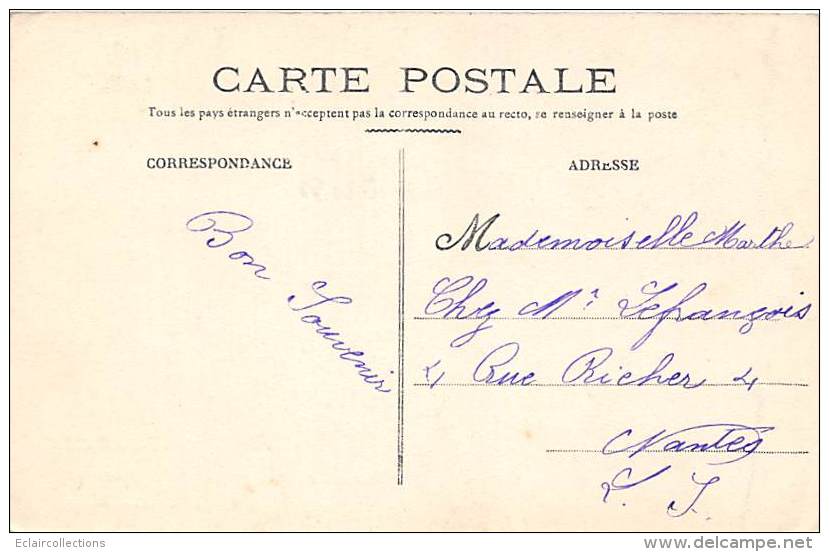 CARTE POSTALE
Tous les pays étrangers n'acceptent pas la correspondance au recto, se renseigner à la poste
CORRESPONDANCE
ADRESSE
Bon
Souvenir
Mademoiselle Marthe
Chez Mr Lefrançois
4 Rue Richer 4
Nantes
L. I.
Eclaircollections
delcampe.net